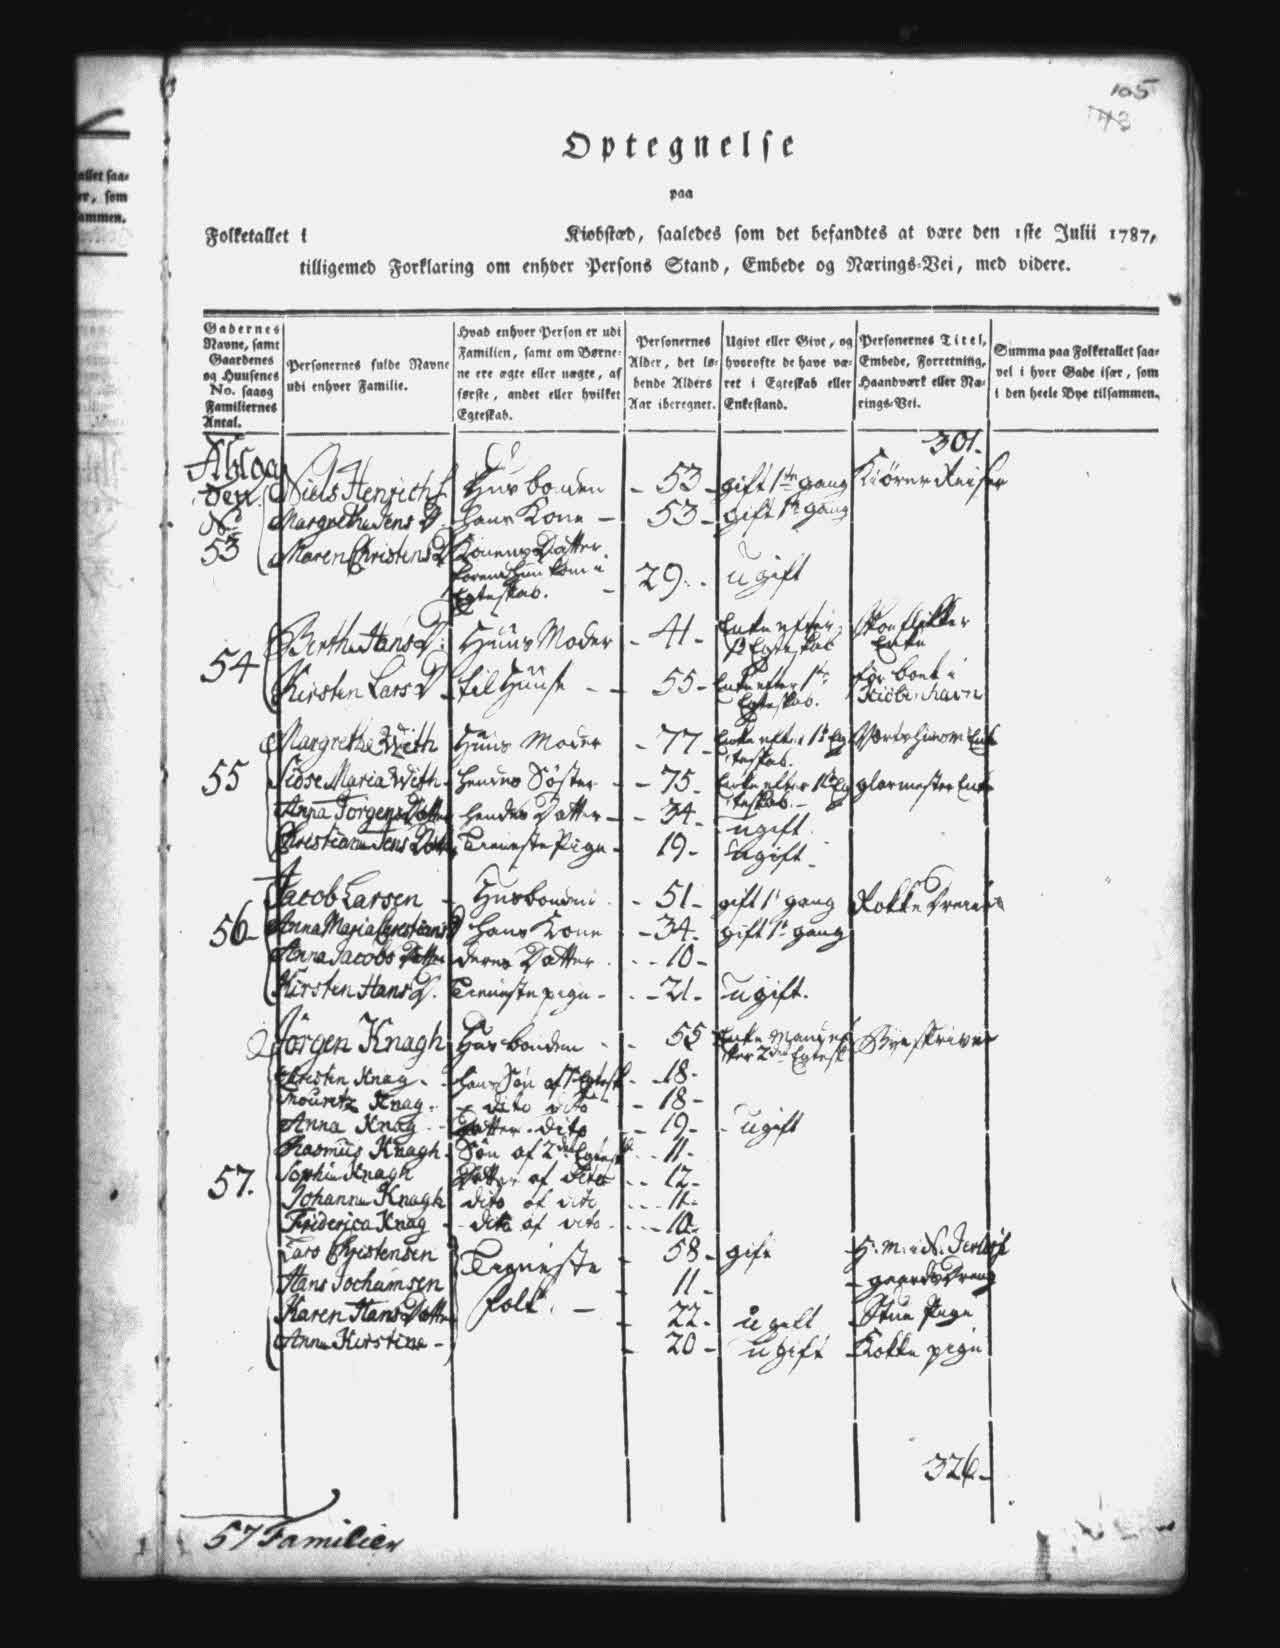 105
43
Optegnelse
paa
Folketallet i Kiøbstæd, saaledes som det befandtes at være den 1ste Julii 1787,
tilligemed Forklaring om enhver Persons Stand, Embede og Nærings-Vei, med videre.
Gadernes Navne, samt Gaardenes og Huusenes No. saaog Familiernes Antal.
Personernes fulde Navne udi enhver Familie.
Hvad enhver Person er udi Familien, samt om Børnene ere ægte eller uægte, af første, andet eller hvilket Egteskab.
Personernes Alder, det løbende Alders Aar iberegnet.
Ugivt eller Givt, og hvorofte de have været i Egteskab eller Enkestand.
Personernes Titel, Embede, Forretning, Haandværk eller Nærings-Vei.
Summa paa Folketallet saavel i hver Gade især, som i den heele Bye tilsammen.
301.
Niels Henrichs. Husbonden - 53 - gift 1te gang
No 53 Margrethe Jens D. hans Kone - 53 - gift 1te gang
Maren Christens D Konens Datter
Egteskab. - 29. - ugift
54 Birthe Hans D: Huus Moder - 41 - Enke efter 1te Egteskab Skoeflikker Enke
Kirsten Lars D. til Huuse - 55 - Enke efter 1te Egteskab. før boet i Kiøbenhavn
Margrethe With Huus Moder - 77 - Enke efter 1te Egteskab.
55 Sidse Maria With - hendes Søster - 75 - Enke efter 1te Egteskab. - glarmester Enke
Anna Jørgens Datter hendes Datter - 34 - ugift
Christiane Jens Datter Tieneste Pige - 19 - ugift
Jacob Larsen - Husbonden - 51 - gift 1te gang Rokke Dreier
56 - Anna Maria Christians D hans Kone - 34 - gift 1te gang
Anna Jacobs Datter deres Datter - 10 -
Kirsten Hans D. Tieneste pige - 21 - ugift.
Jörgen Knagh Husbonden - 55 Enke Mand efter 2det Egtesk. Byeskriver
Christen Knag - hans Søn af 1te Egtesk. - 18 -
Mouritz Knag - dito dito - 18 -
Anna Knag - Datter dito - 19 - ugift
Rasmus Knagh - Søn af 2det Egtesk. - 11 -
57. Sophie Knagh Datter af dito - 12 -
Johanne Knagh dito af dito - 11 -
Friderica Knag - dito af dito - 10 -
Lars Christensen Tieneste - 58 - gift
Hans Jochumsen folk. - 11 - gaards Dreng
Karen Hans Datter - 22 - ugift Stue Pige
Anne Kirstine - 20 - ugift Kokke pige
326 -
57 Familier